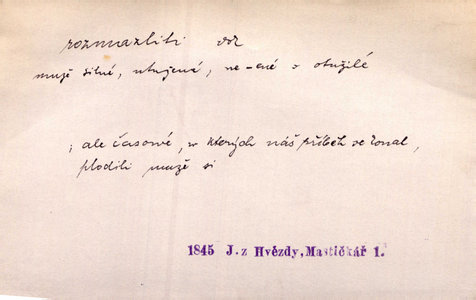 rozmazliti
muže silné, utužené, ne-
; ale časové, v kterých náš příběh se konal,
plodili muže si
1845 J. z Hvězdy, Mastičkář 1.